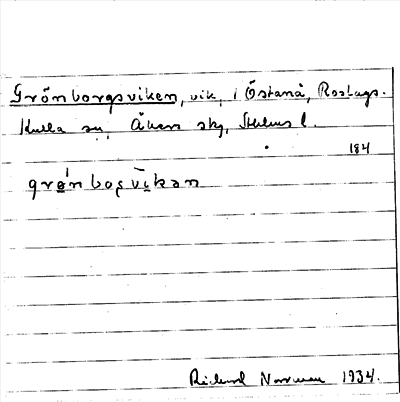 Grönborgsviken, vik, i Östanå, Roslags-
Kulla sn, Åkers skg, Sthlms l.
184
grønbogsvikan
Rickard Norrman 1934.